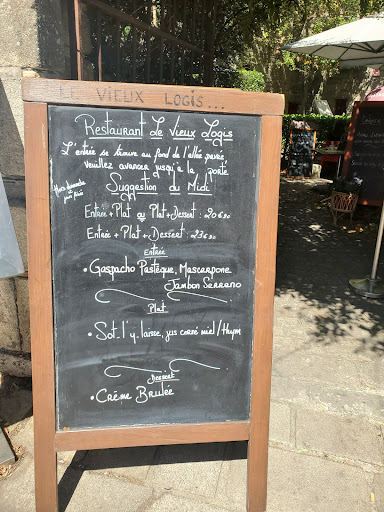 LE VIEUX LOGIS...
Restaurant Le Vieux Logis
L'entrée se trouve au fond de l'allée pavée
veuillez avancer jusqu'à la porte
Suggestion du Midi
Hors dimanche
et jours fériés
Entrée + Plat ou Plat + Dessert : 20€90
Entrée + Plat + Dessert : 23€90
Entrée
• Gaspacho Pastèque, Mascarpone
Jambon Serrano
Plat
• Sot. l'y. laisse, jus corsé miel/Thym
Dessert
• Crème Brulée